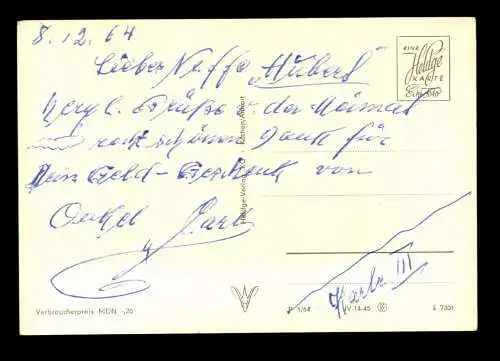 8.12.64
Lieber Neffe „Hubert"
herzl. Grüße a. der Heimat
und recht schönen Dank für
Dein Geld-Geschenk von
Onkel Karl
Karte III
EINE
Heldge
KARTE
Heldge-Verlag KG Köthen/Anhalt
Verbraucherpreis MDN -,20
P 1/64 IV-14-45 L 7301